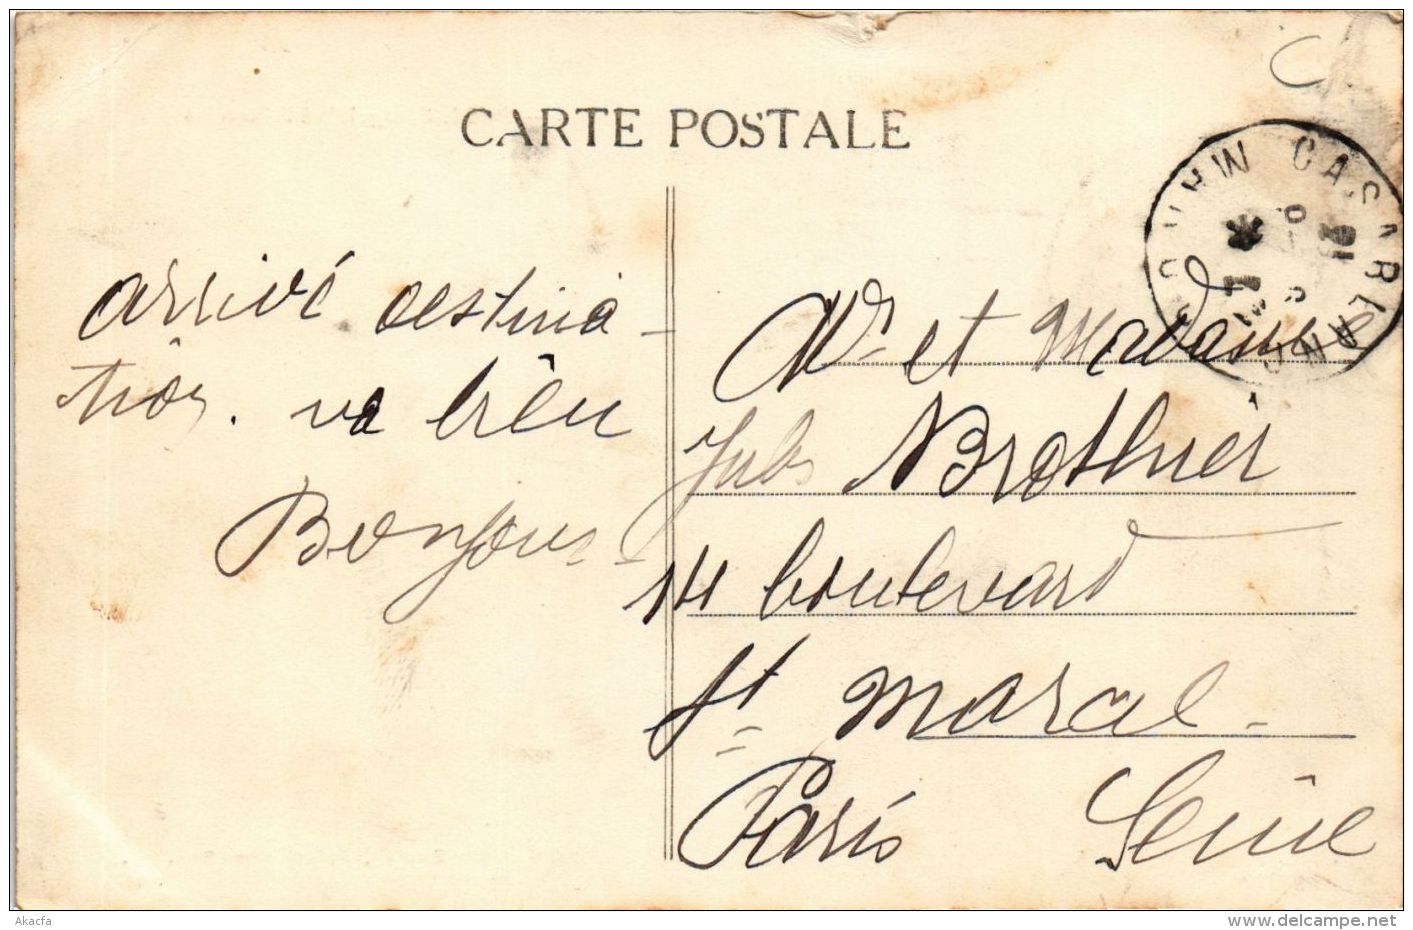 CARTE POSTALE
arrivé destina-
tion. va bien
Bonjour
Mr et Madame
Jules Brothier
141 boulevard
St Marcel
Paris Seine
CASABLANCA
Akacfa
www.delcampe.net